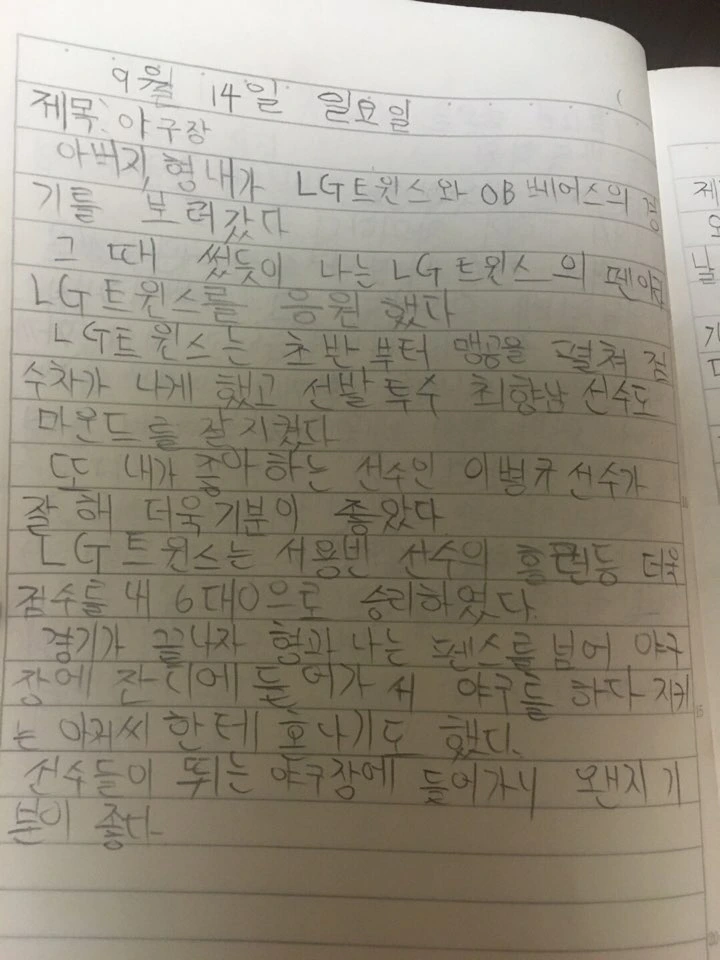 9월 14일 일요일
제목: 야구장
아버지, 형 내가 LG트윈스와 OB 베어스의 경
기를 보러갔다
그 때 썼듯이 나는 LG 트윈스의 팬이라
LG트윈스를 응원 했다
LG트윈스는 초반 부터 맹공을 펼쳐 점
수차가 나게 했고 선발 투수 최향남 선수도
마운드를 잘 지켰다
또 내가 좋아 하는 선수인 이병규 선수가
잘 해 더욱 기분이 좋았다
LG트윈스는 서용빈 선수의 홈런등 더욱
점수를 내 6대0으로 승리하였다.
경기가 끝나자 형과 나는 펜스를 넘어 야구
장에 잔디에 들어가 서 야구를 하다 지키
는 아저씨 한테 혼나기도 했다.
선수들이 뛰는 야구장에 들어가니 왠지 기
분이 좋다.
제
오
날